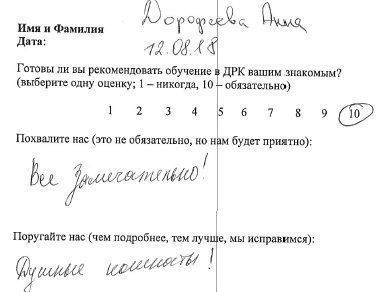 Имя и Фамилия Дорофеева Анна
Дата: 12.08.18
Готовы ли вы рекомендовать обучение в ДРК вашим знакомым?
(выберите одну оценку; 1 – никогда, 10 – обязательно)
1 2 3 4 5 6 7 8 9 10
Похвалите нас (это не обязательно, но нам будет приятно):
Все Замечательно!
Поругайте нас (чем подробнее, тем лучше, мы исправимся):
Душные комнаты!